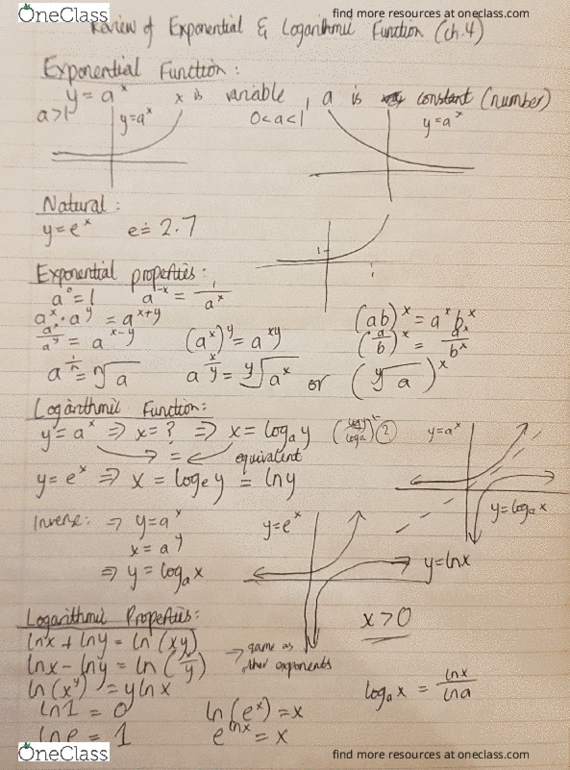 OneClass
find more resources at oneclass.com
Review of Exponential & Logarithmic Function (ch.4)
Exponential Function:
y = aˣ x is variable, a is constant (number)
a>1 y=aˣ 0<a<1 y=aˣ
Natural:
y=eˣ e≐2.7
1
1
Exponential properties:
a⁰=1 a⁻ˣ = 1/aˣ
aˣ·aʸ = aˣ⁺ʸ (ab)ˣ = aˣbˣ
aˣ/aʸ = aˣ⁻ʸ (aˣ)ʸ = aˣʸ (a/b)ˣ = aˣ/bˣ
a^(1/n) = ⁿ√a a^(x/y) = ʸ√aˣ or (ʸ√a)ˣ
Logarithmic Function:
y=aˣ ⇒ x=? ⇒ x = logₐy y=aˣ
= equivalent
y=eˣ ⇒ x = logₑy = lny
y=logₐx
Inverse: ⇒ y=aˣ y=eˣ
x=aʸ
⇒ y=logₐx y=lnx
x>0
Logarithmic Properties:
lnx + lny = ln(xy)
→ same as other exponents
lnx - lny = ln(x/y)
ln(xʸ) = ylnx logₐx = lnx/lna
ln1 = 0 ln(eˣ)=x
lne = 1 e^(lnx) = x
OneClass
find more resources at oneclass.com